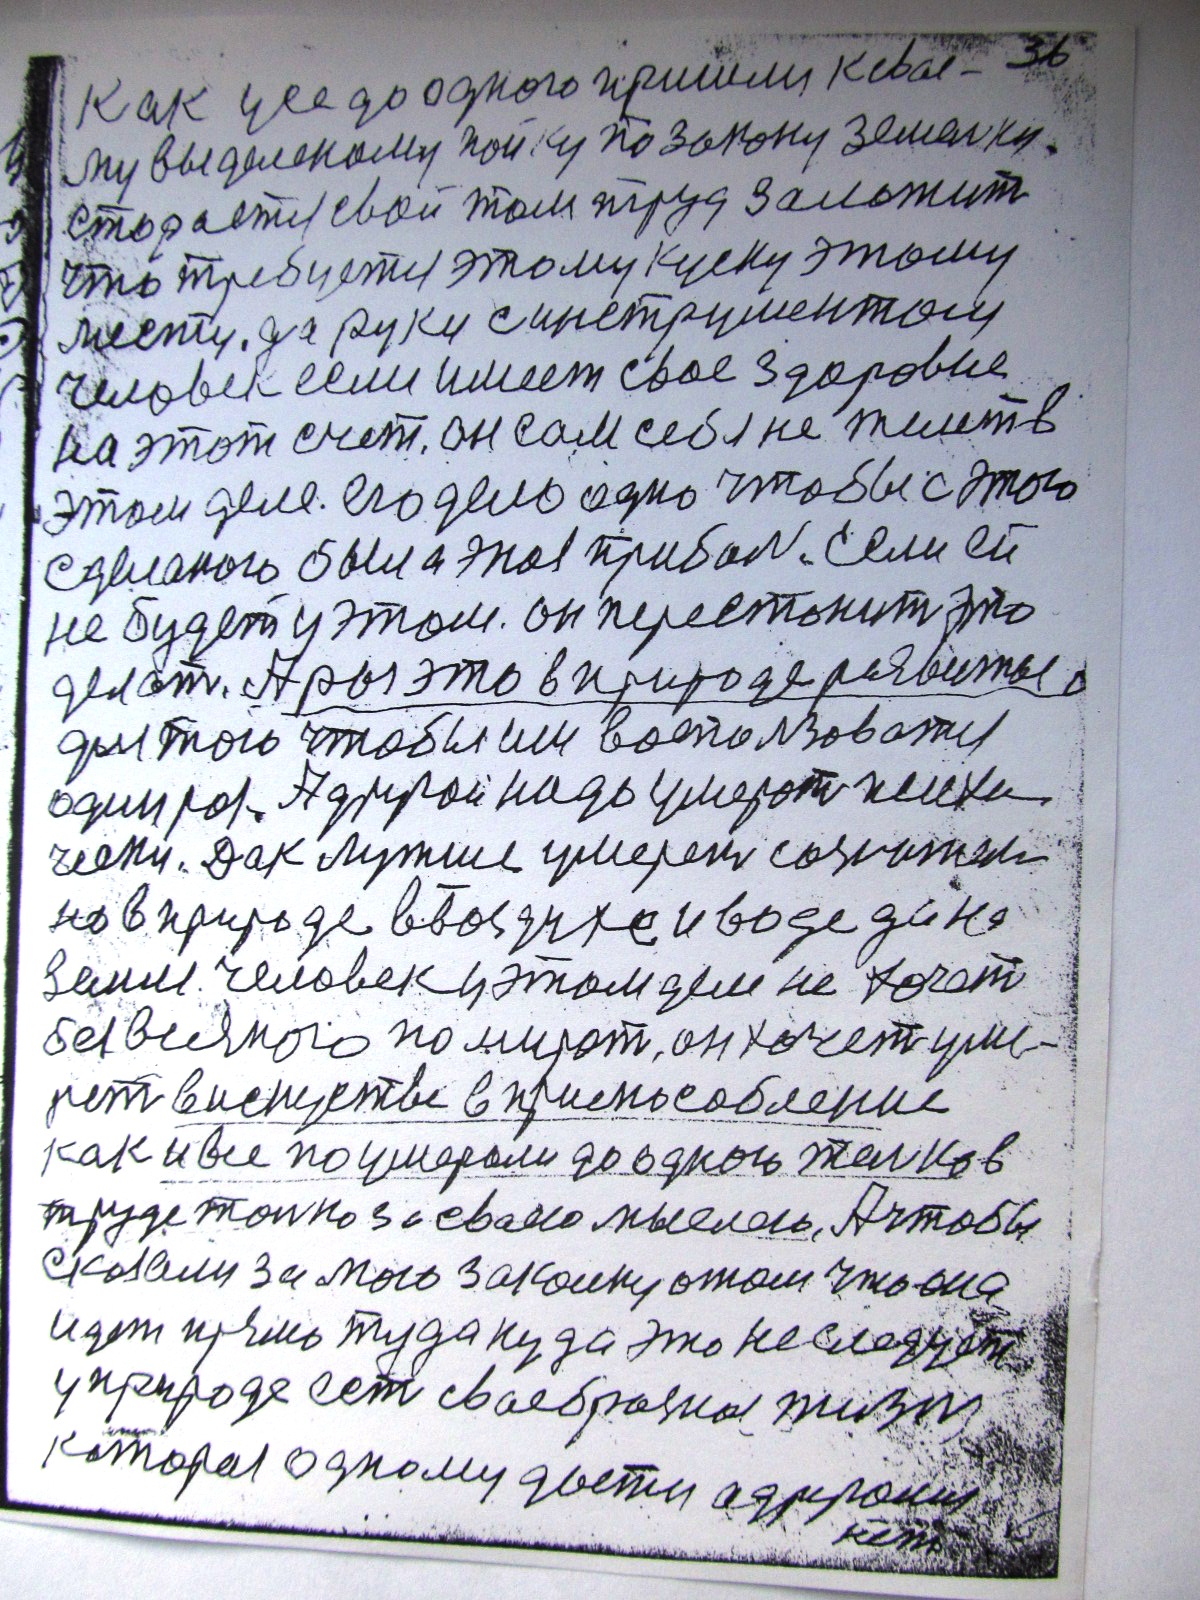 36
Как усе до одного пришли к свае-
му выделеному пойку по закону земельки.
стораетя свой там труд заложит
что требуетя этому куску этому
месту. да руки с инструментом
человек если имеет свое здоровие
на этот счет. он сам себя не желетв
этом деле. его дело одно чтобы с этого
сделаного была эта прибол. Если ей
не будет у этом. он перестонит это
делат. А роз это в природе развитые
для того чтобы им воспользоватя
один роз. А другой надо умерат психи
чески. Дак лутше умерет сознатель
но в природе в воздухе и воде да на
земли. человек у этом деле не хочет
без всякого помират, он хочет уме-
рет в искустве вприспособление
как и все поумерали до одного толков
труде толко за сваю мыслею. А чтобы
сказали за мою закалку отом что она
идет прямо туда куда это не следует
у природе ест сваеобразная жизн
которая одному дается а другому
нет